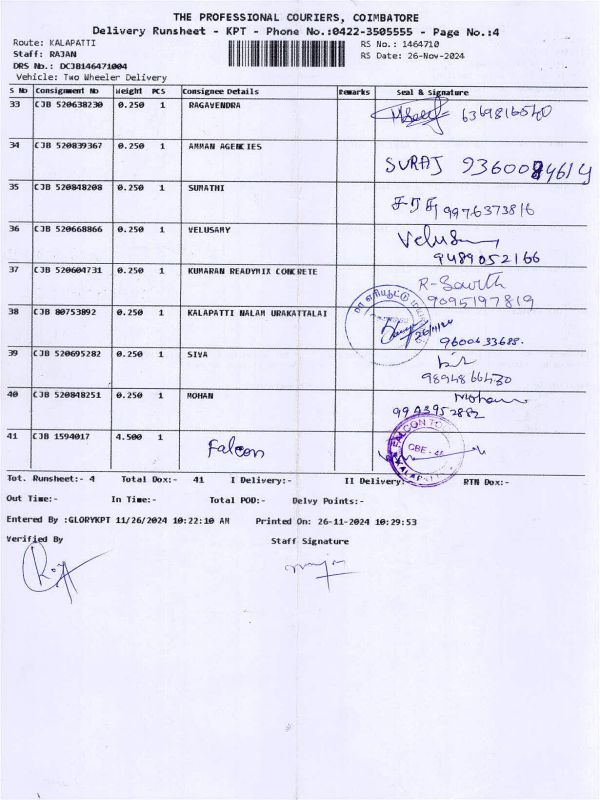 THE PROFESSIONAL COURIERS, COIMBATORE
Delivery Runsheet - KPT - Phone No.:0422-3505555 - Page No.:4
Route: KALAPATTI
RS No.: 1464710
Staff: RAJAN
RS Date: 26-Nov-2024
DRS No.: DCJB146471004
Vehicle: Two Wheeler Delivery
S No Consignment No Weight PCS Consignee Details Remarks Seal & Signature
33 CJB 520638230 0.250 1 RAGAVENDRA 6369816540
34 CJB 520839367 0.250 1 AMMAN AGENCIES
SURAJ 9360084614
35 CJB 520848208 0.250 1 SUMATHI
9976373816
36 CJB 520668866 0.250 1 VELUSAMY
9489052166
37 CJB 520604731 0.250 1 KUMARAN READYMIX CONCRETE
9095197819
38 CJB 80753892 0.250 1 KALAPATTI NALAM URAKATTALAI
26/11/24
9600633688.
39 CJB 520695282 0.250 1 SIVA
9894866430
40 CJB 520848251 0.250 1 MOHAN
9943952882
41 CJB 1594017 4.500 1 Falcon
Tot. Runsheet:- 4 Total Dox:- 41 I Delivery:- II Delivery:- RTN Dox:-
Out Time:- In Time:- Total POD:- Delvy Points:-
Entered By :GLORYKPT 11/26/2024 10:22:10 AM Printed On: 26-11-2024 10:29:53
Verified By Staff Signature